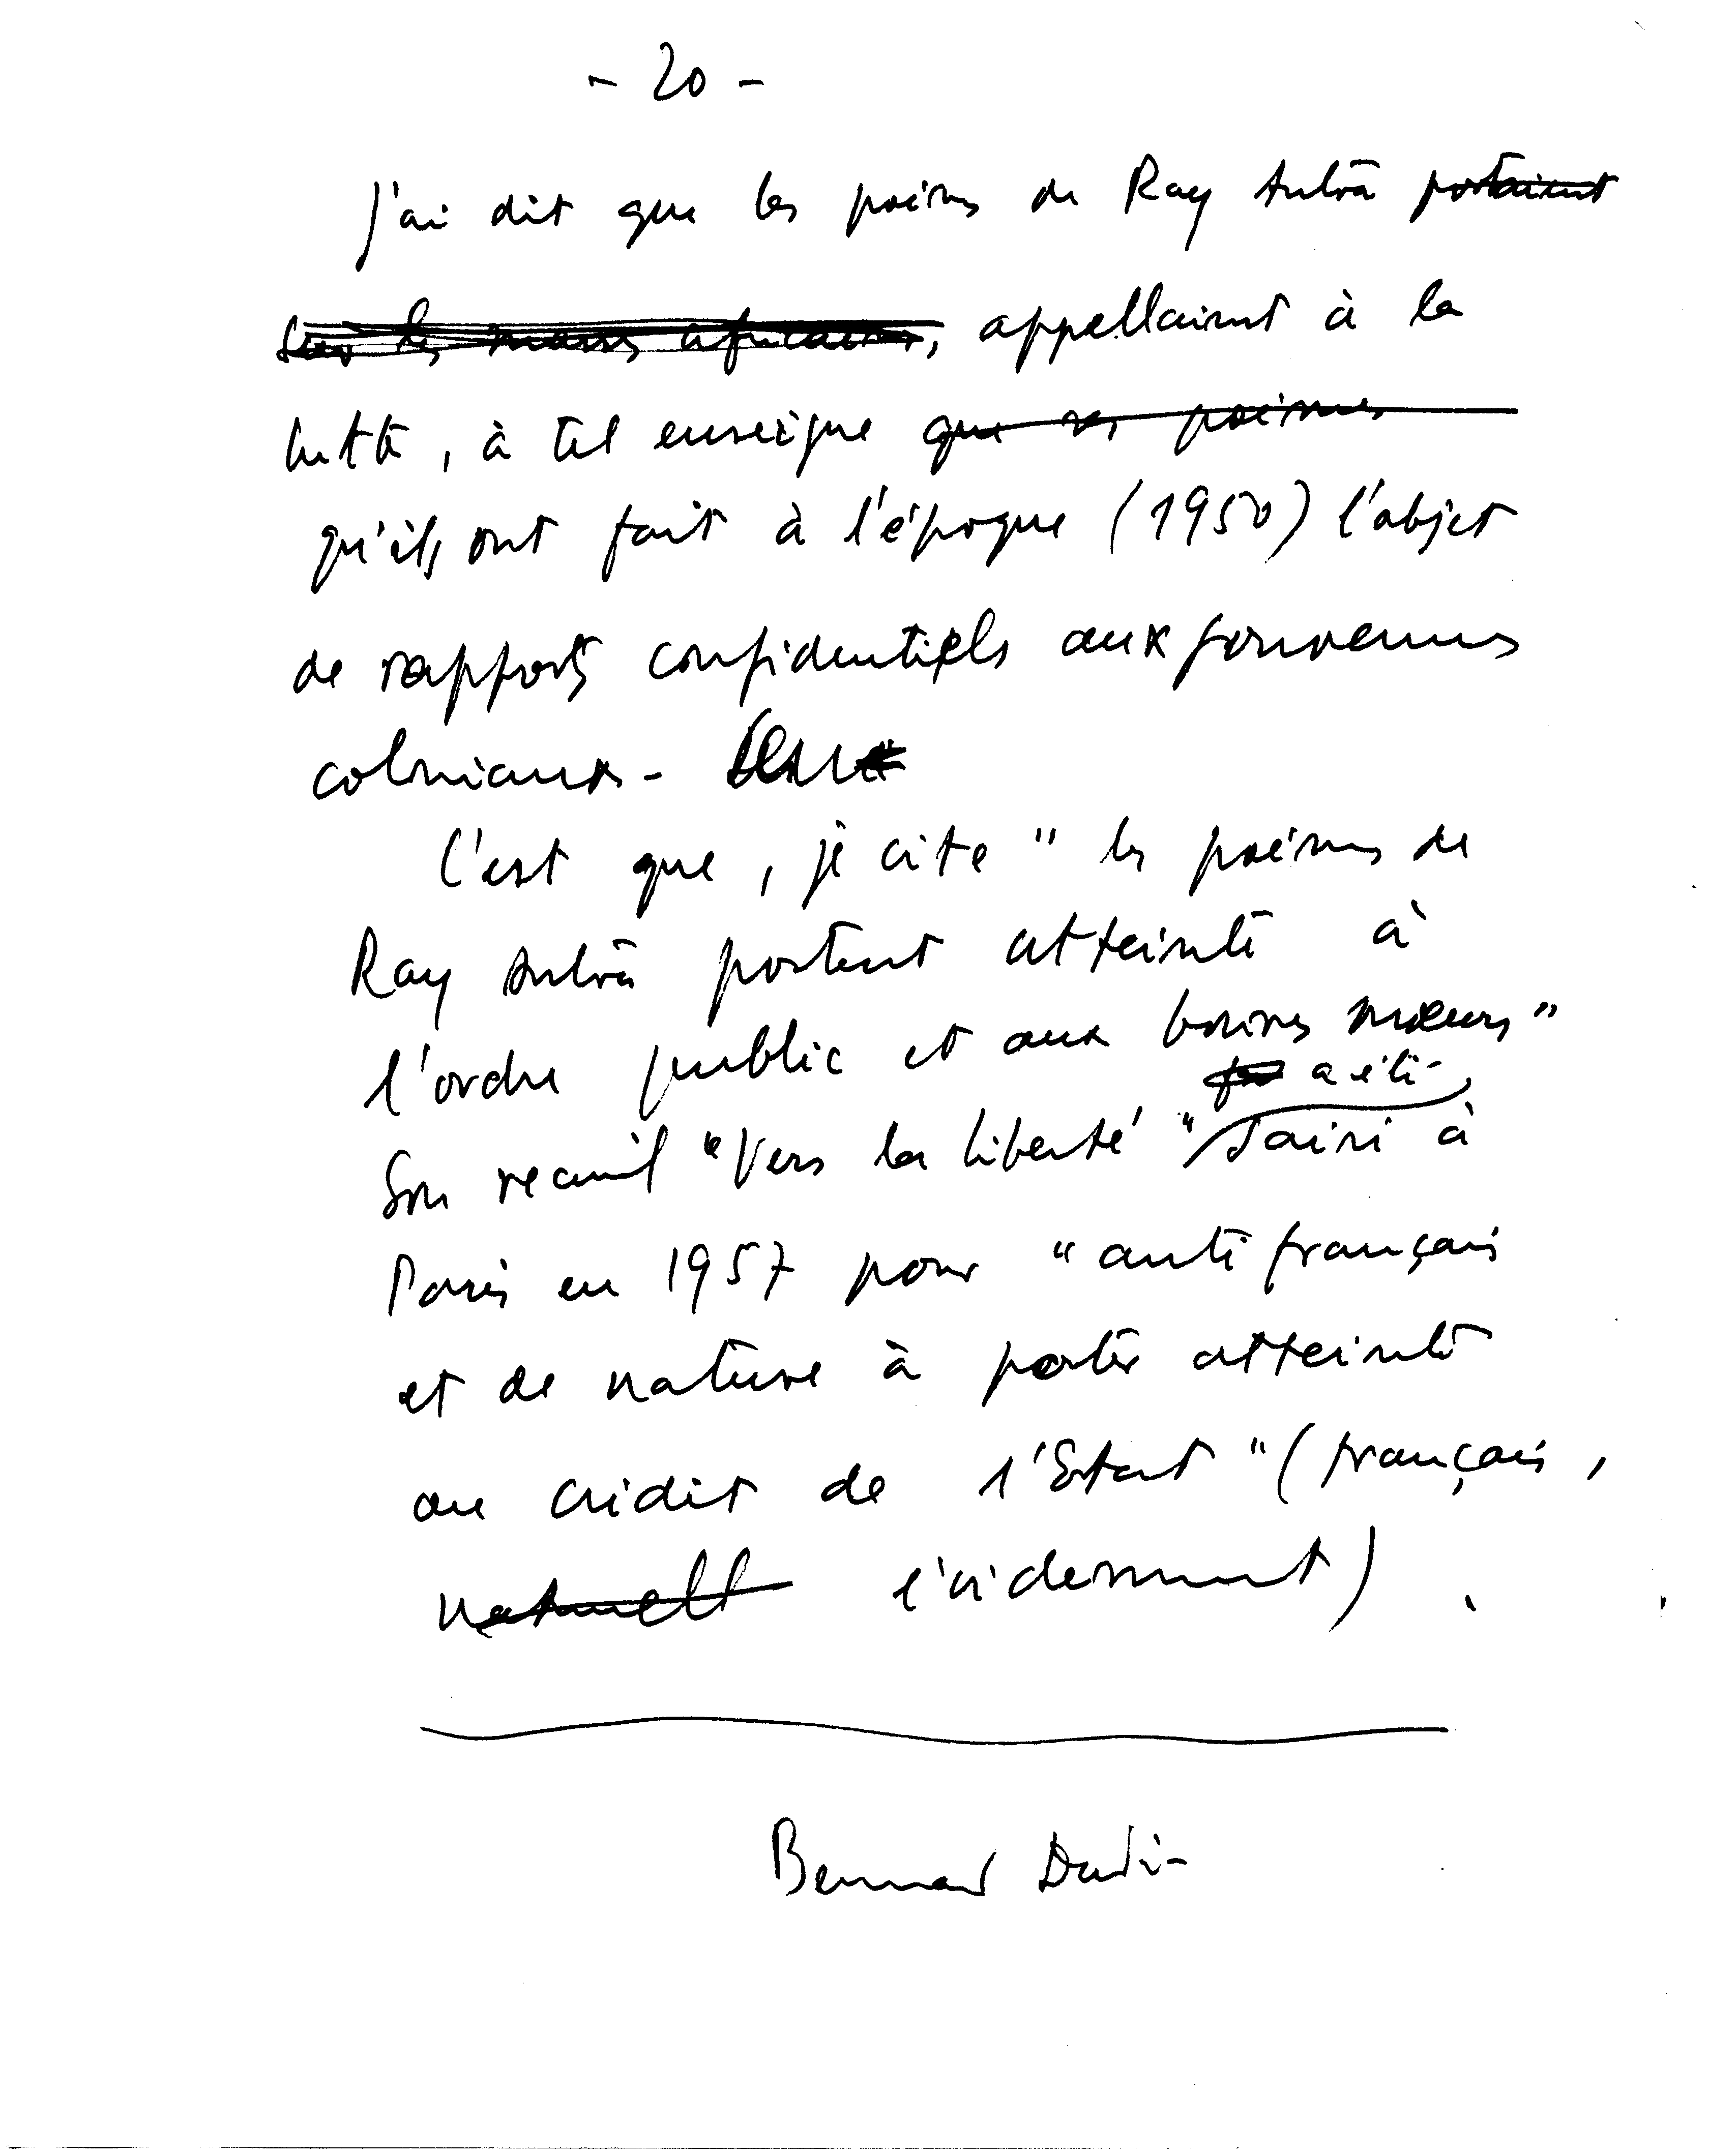 - 20 -
J'ai dit que les poèmes de Ray Autra portaient
sur les masses africaines, appellaient à la
lutte, à tel enseigne que ses poèmes
qu'ils ont fait à l'époque (1950) l'objet
de rapports confidentiels aux gouverneurs
coloniaux -
C'est que, je cite " les poèmes de
Ray Autra portent atteinte à
l'ordre public et aux bonnes mœurs "
a été
Son recueil " Vers la liberté " saisi à
Paris en 1957 pour " anti français
et de nature à porter atteinte
au crédit de l'Etat " (français,
naturell évidemment) .
Bernard Dadié